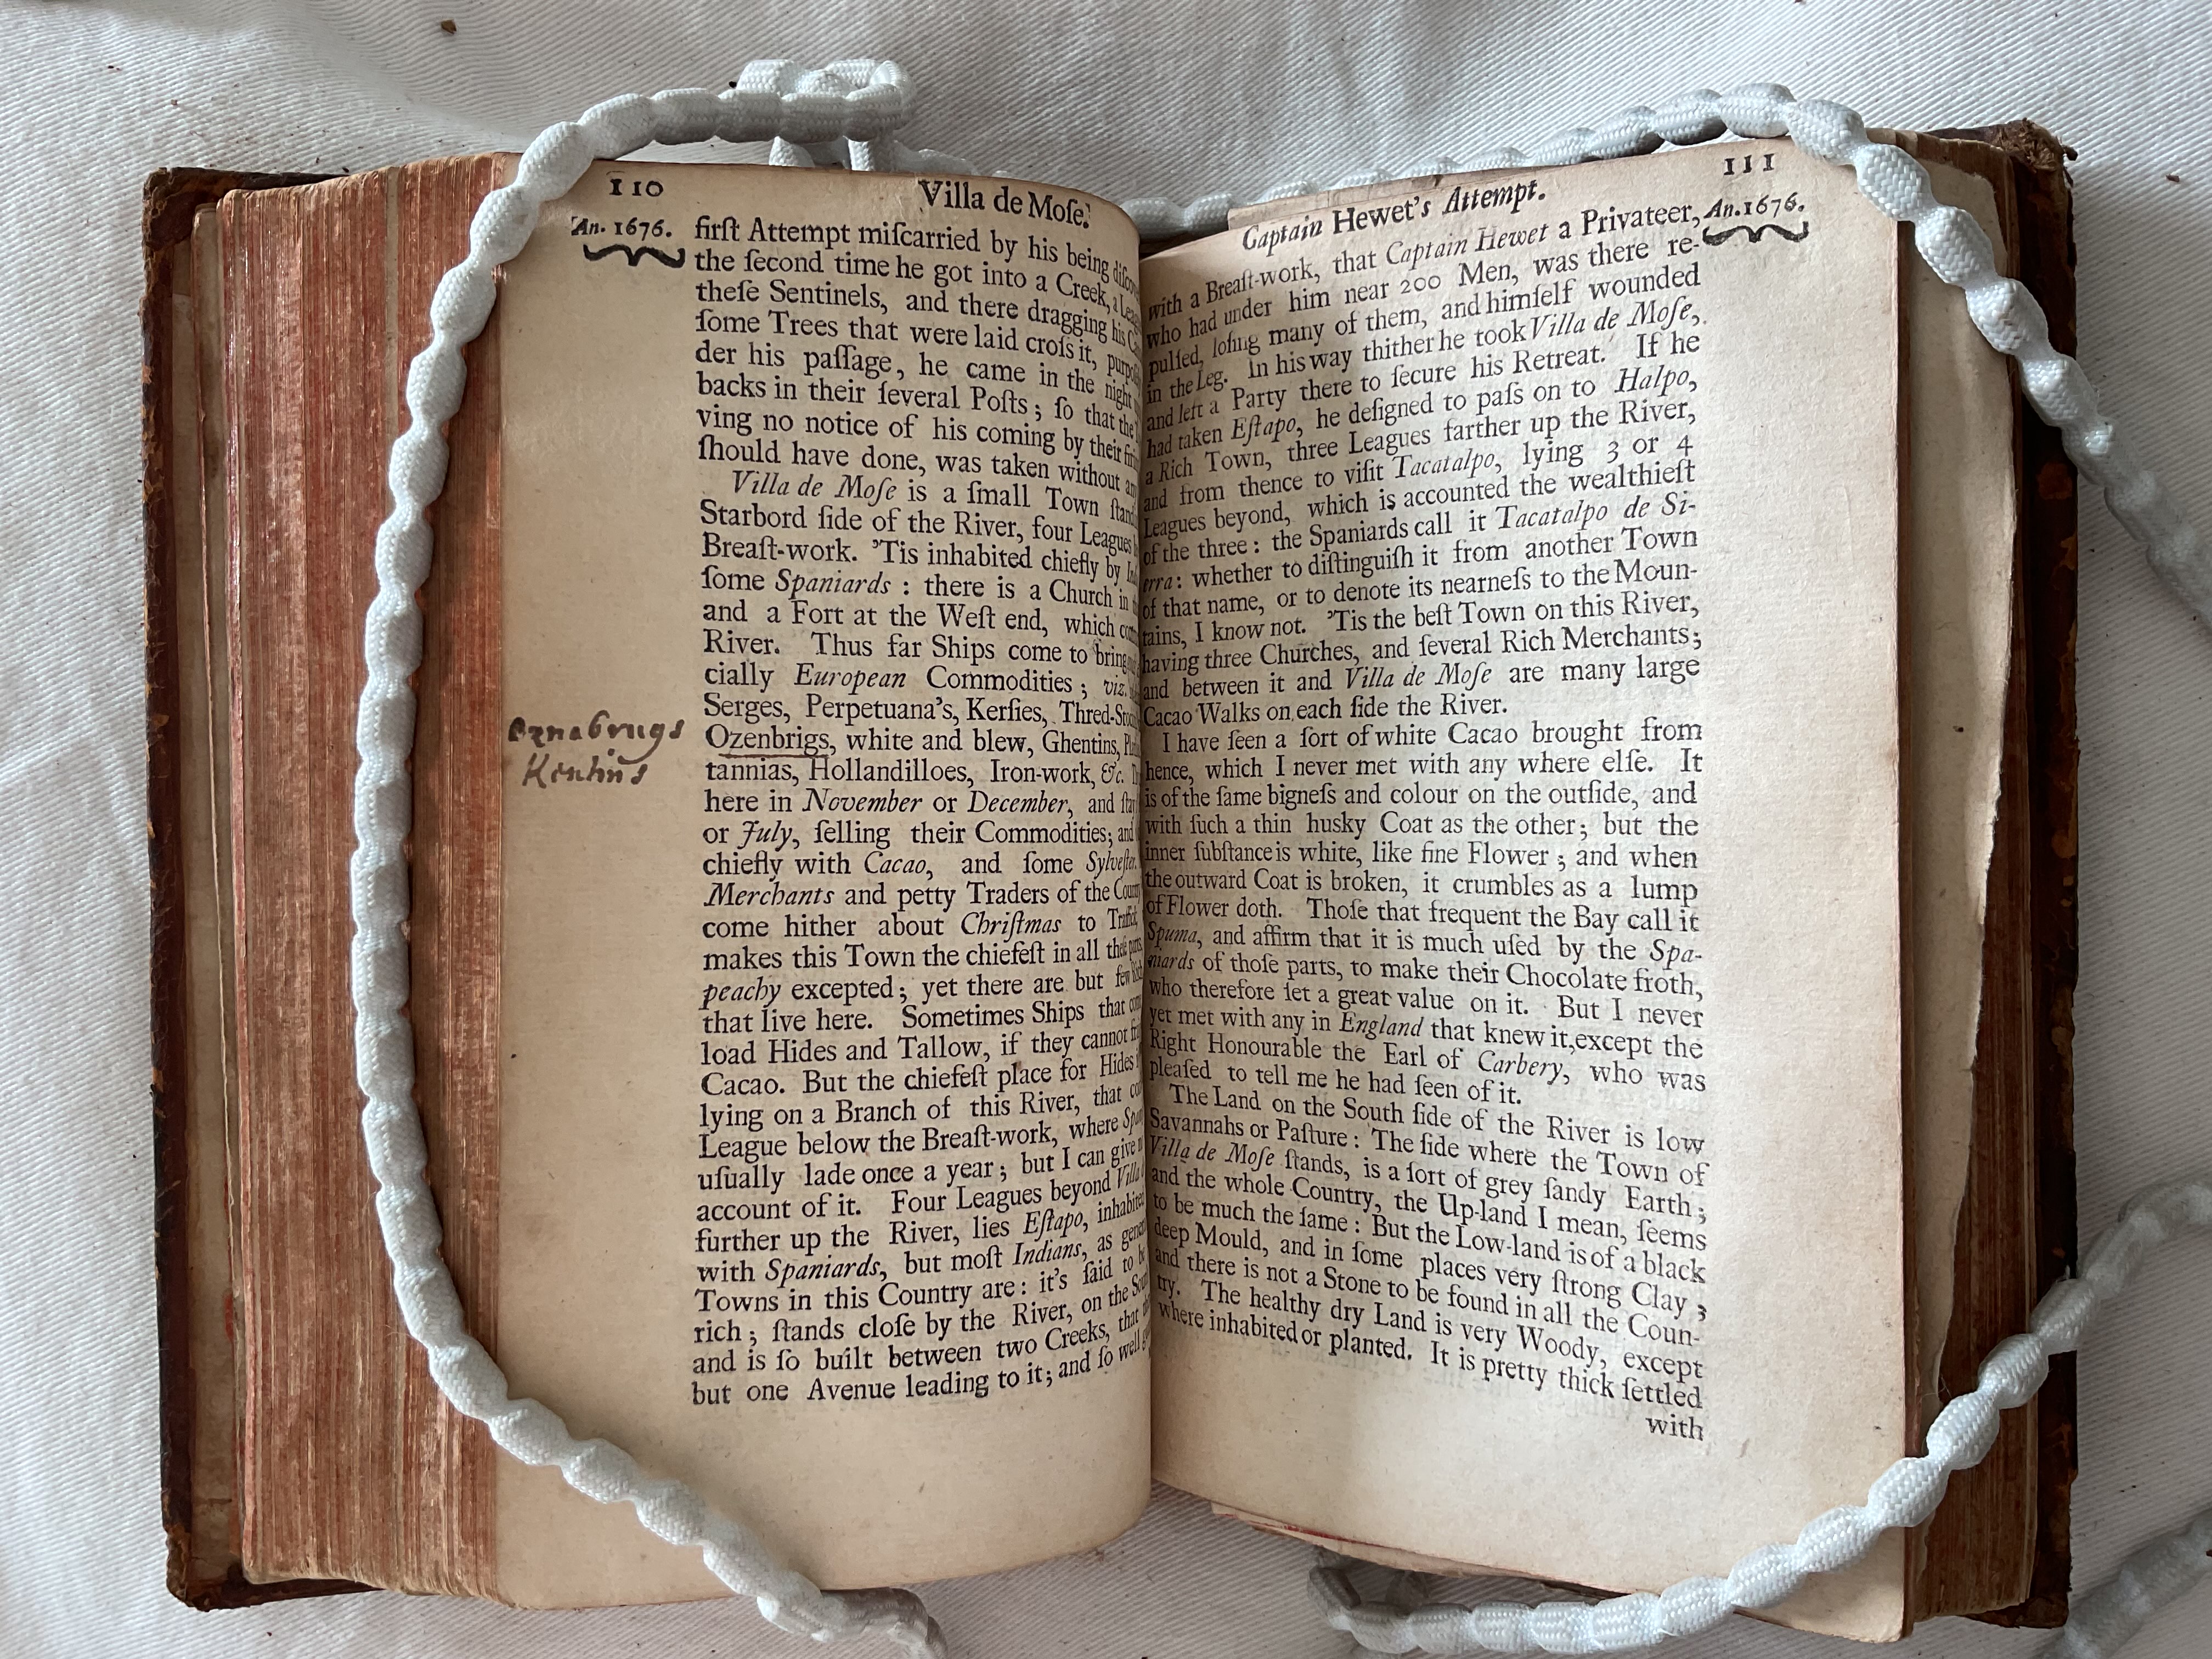 110
Villa de Moſe.
An. 1676.
firſt Attempt miſcarried by his being
the ſecond time he got into a Creek, a
theſe Sentinels, and there dragging his
ſome Trees that were laid croſs it,
der his paſſage, he came in the night
backs in their ſeveral Poſts; ſo that the
ving no notice of his coming by their
ſhould have done, was taken without
Villa de Moſe is a ſmall Town
Starbord ſide of the River, four Leagues
Breaſt-work. 'Tis inhabited chiefly by
ſome Spaniards: there is a Church in
and a Fort at the Weſt end, which
River. Thus far Ships come to bring
cially European Commodities; viz.
Serges, Perpetuana's, Kerſies, Thred-
Oznabrugs
Ozenbrigs, white and blew, Ghentins,
Kentins
tannias, Hollandilloes, Iron-work, &c.
here in November or December, and
or July, ſelling their Commodities; and
chiefly with Cacao, and ſome
Merchants and petty Traders of the
come hither about Chriſtmas to
makes this Town the chiefeſt in all
peachy excepted; yet there are but few
that live here. Sometimes Ships that
load Hides and Tallow, if they cannot
Cacao. But the chiefeſt place for Hides
lying on a Branch of this River, that
League below the Breaſt-work, where
uſually lade once a year; but I can give
account of it. Four Leagues beyond Villa
further up the River, lies Eſtapo,
with Spaniards, but moſt Indians, as
Towns in this Country are: it's ſaid to
rich; ſtands cloſe by the River, on the
and is ſo built between two Creeks, that
but one Avenue leading to it; and ſo well
Captain Hewet's Attempt.
111
An. 1676.
with a Breaſt-work, that Captain Hewet a Privateer,
who had under him near 200 Men, was there re-
pulſed, loſing many of them, and himſelf wounded
in the Leg. In his way thither he took Villa de Moſe,
and left a Party there to ſecure his Retreat. If he
had taken Eſtapo, he deſigned to paſs on to Halpo,
a Rich Town, three Leagues farther up the River,
and from thence to viſit Tacatalpo, lying 3 or 4
Leagues beyond, which is accounted the wealthieſt
of the three: the Spaniards call it Tacatalpo de Si-
erra: whether to diſtinguiſh it from another Town
of that name, or to denote its nearneſs to the Moun-
tains, I know not. 'Tis the beſt Town on this River,
having three Churches, and ſeveral Rich Merchants;
and between it and Villa de Moſe are many large
Cacao Walks on each ſide the River.
I have ſeen a ſort of white Cacao brought from
hence, which I never met with any where elſe. It
is of the ſame bigneſs and colour on the outſide, and
with ſuch a thin husky Coat as the other; but the
inner ſubſtance is white, like fine Flower; and when
the outward Coat is broken, it crumbles as a lump
of Flower doth. Thoſe that frequent the Bay call it
Spuma, and affirm that it is much uſed by the Spa-
niards of thoſe parts, to make their Chocolate froth,
who therefore ſet a great value on it. But I never
yet met with any in England that knew it, except the
Right Honourable the Earl of Carbery, who was
pleaſed to tell me he had ſeen of it.
The Land on the South ſide of the River is low
Savannahs or Paſture: The ſide where the Town of
Villa de Moſe ſtands, is a ſort of grey ſandy Earth;
and the whole Country, the Up-land I mean, ſeems
to be much the ſame: But the Low-land is of a black
deep Mould, and in ſome places very ſtrong Clay;
and there is not a Stone to be found in all the Coun-
try. The healthy dry Land is very Woody, except
where inhabited or planted. It is pretty thick ſettled
with